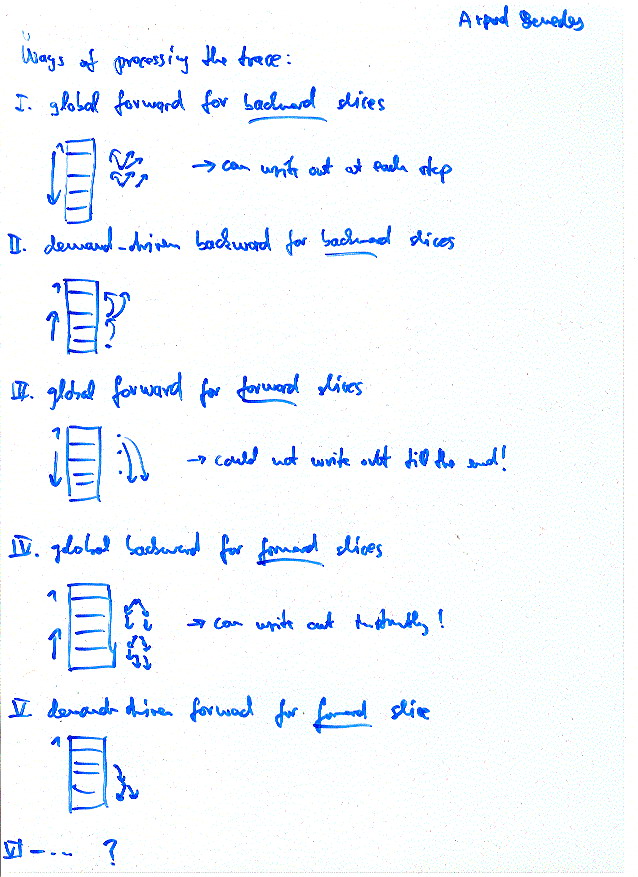 Arpad Beszedes
Ways of processing the trace:
I. global forward for backward slices
→ can write out at each step
II. demand-driven backward for backward slices
III. global forward for forward slices
→ could not write out till the end!
IV. global backward for forward slices
→ can write out instantly!
V demand-driven forward for forward slice
VI -... ?